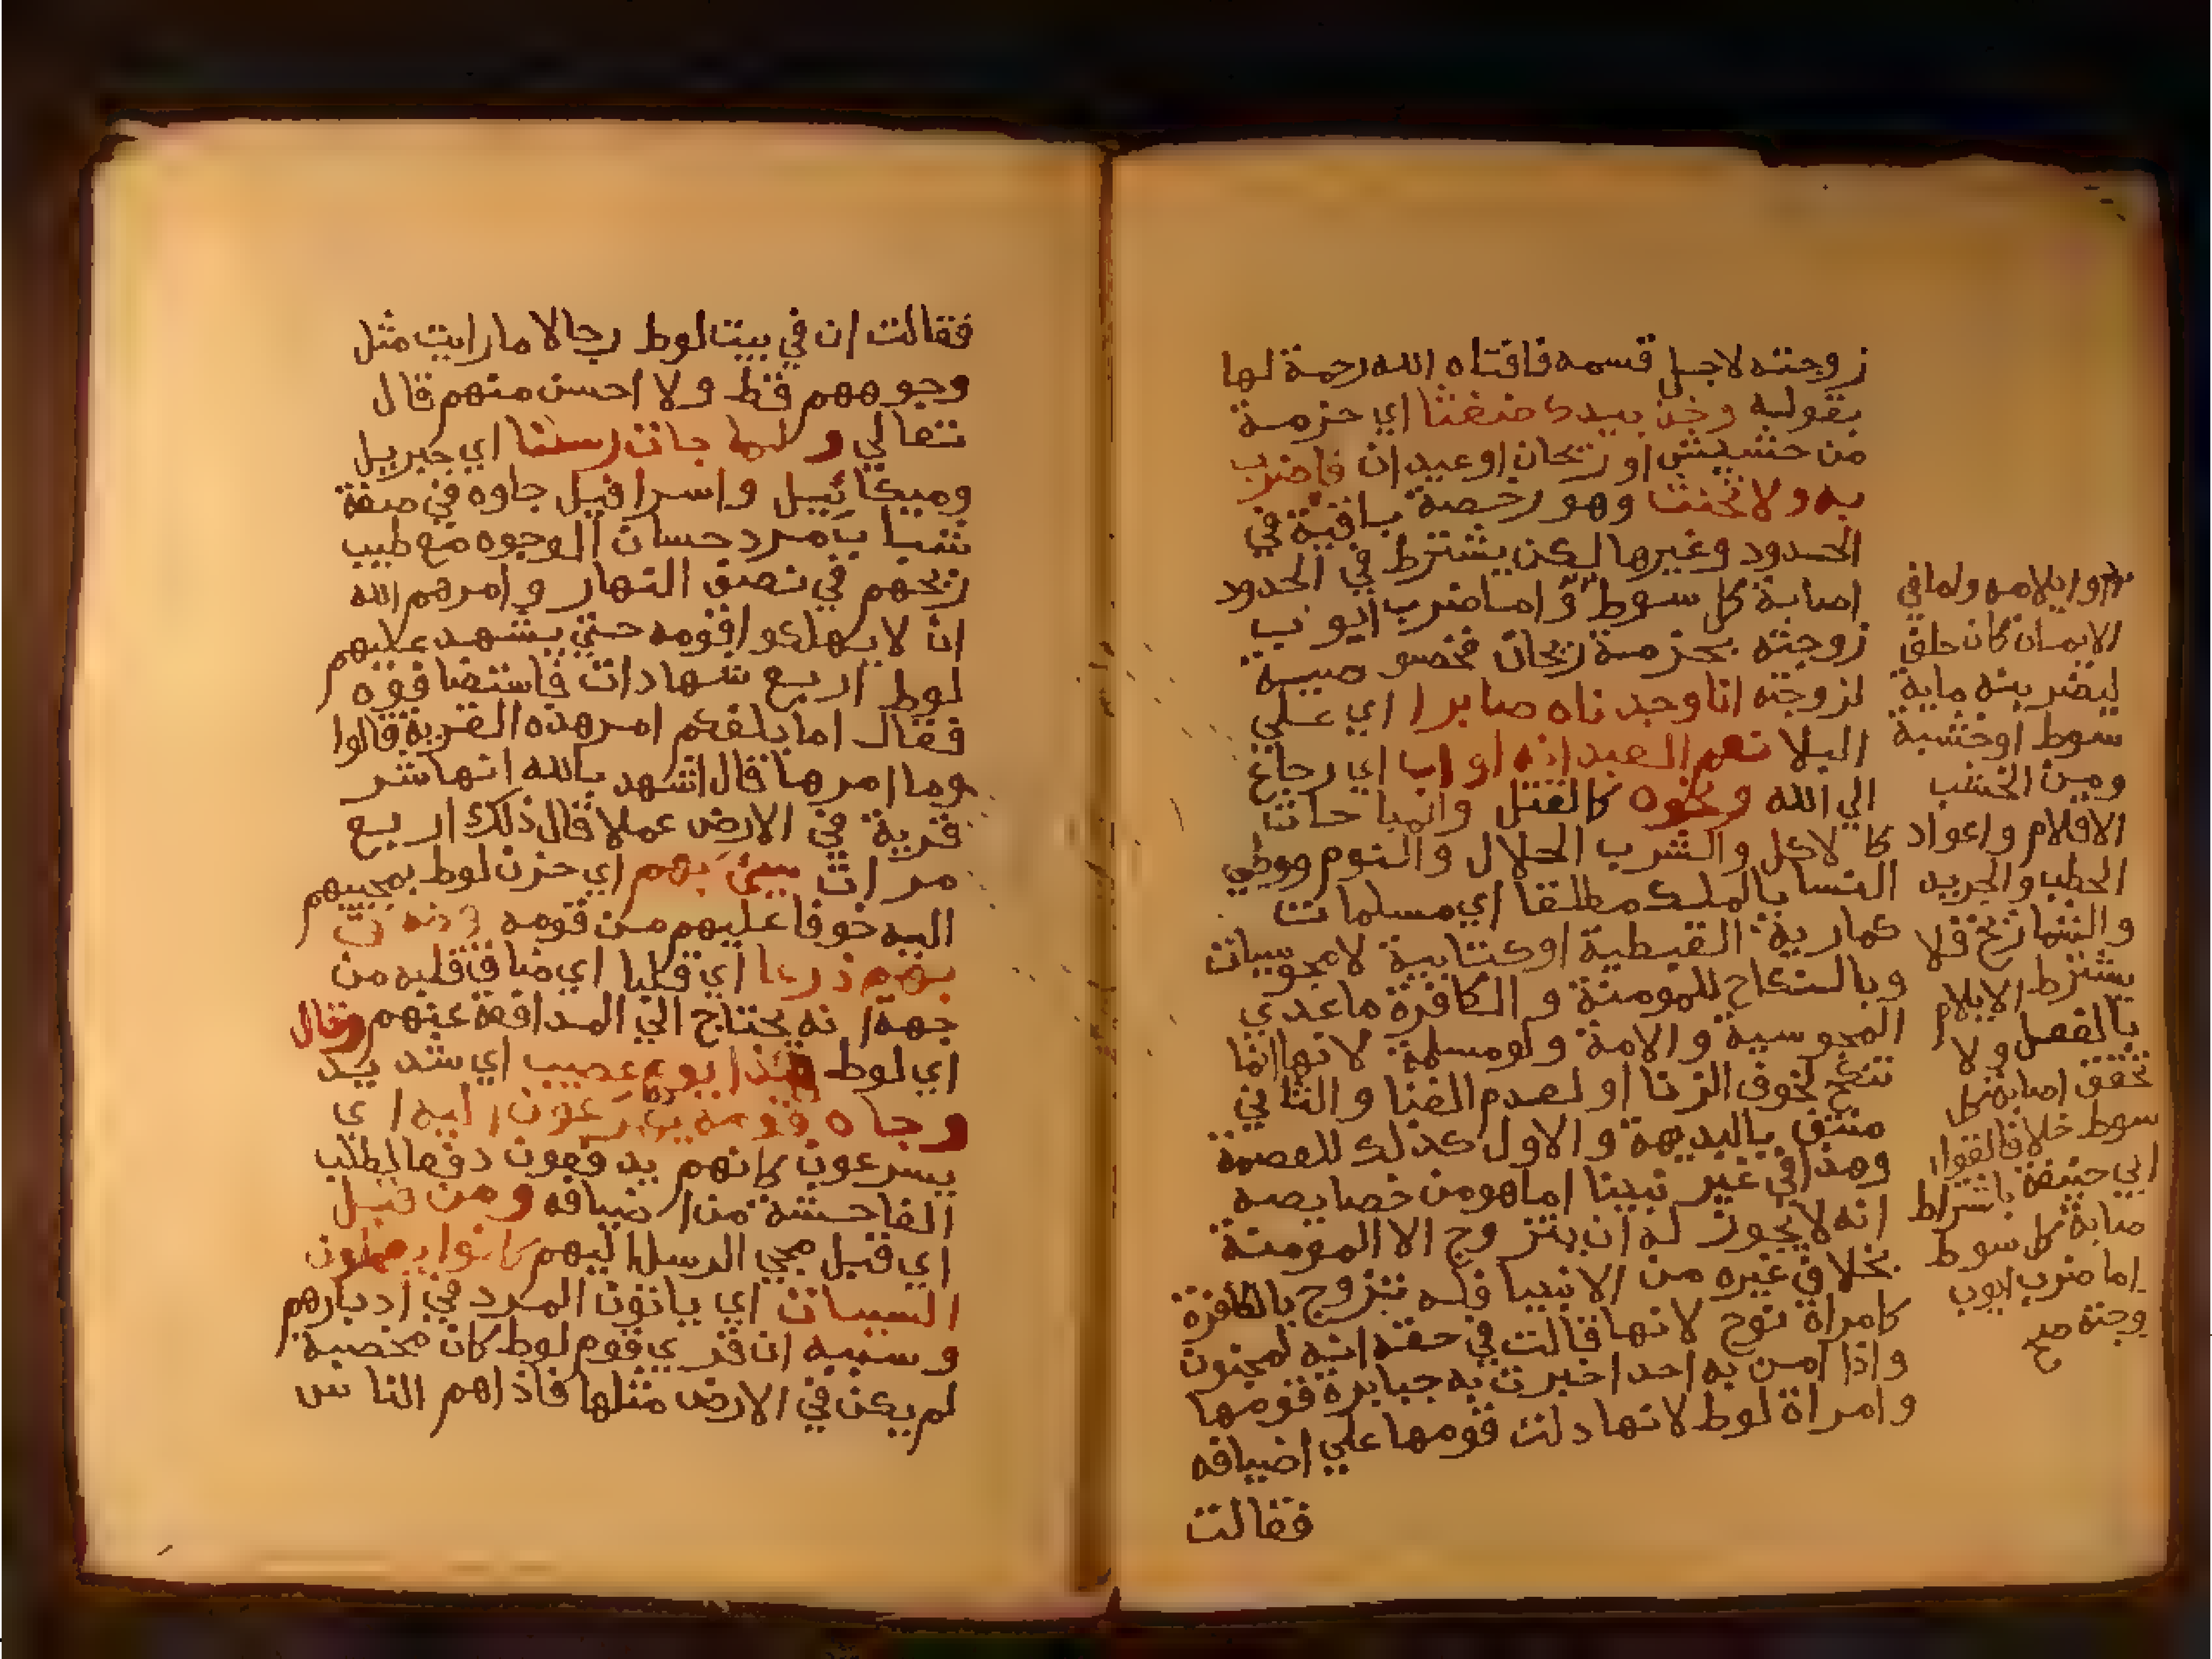 زوجته لاجل قسمه فافتاه الله رحمة لها
بقوله وخذ بيدك ضغثا اي حزمة
من حشيش او ريحان او عيدان فاضرب
به ولا تحنث وهو رخصة باقية في
الحدود وغيرها لكن يشترط في الحدود
اصابة كل سوط واما ضرب ايوب
زوجته بحزمة ريحان فخصوصية
لزوجته انا وجدناه صابرا اي علي
البلا نعم العبد انه اواب اي رجاع
الي الله ونحوه كالقتل والمباحات
كالاكل والشرب الحلال والنوم ووطي
النسا بالملك مطلقا اي مسلمات
كمارية القبطية او كتابية لا مجوسيات
وبالنكاح للمومنة والكافرة ماعدي
المجوسية والامة ولو مسلمة لانها انما
تنكح لخوف الزنا او لعدم الغنا والثاني
منتف بالبديهة والاول كذلك للعصمة
وهذا في غير نبينا اما هو من خصايصه
انه لا يجوز له ان يتزوج الا المومنة
بخلاف غيره من الانبيا فله تزوج بالكافرة
كامراة نوح لانها قالت في حقه انه لمجنون
واذا امن به احد اخبرت به جبابرة قومها
وامراة لوط لانها دلت قومها علي اضيافه
فقالت
وايلامه ولما في
الايمان كان حلف
ليضربنه ماية
سوط او خشبة
ومن الخشب
الاقلام واعواد
الحطب والجريد
والشماريخ فلا
يشترط الايلام
بالفعل ولا
تحقق اصابة كل
سوط خلافا لقول
ابي حنيفة باشتراط
صابة كل سوط
اما ضرب ايوب
وجته صح
فقالت ان في بيت لوط رجالا ما رايت مثل
وجوههم قط ولا احسن منهم قال
تعالي ولما جات رسلنا اي جبريل
وميكائيل واسرافيل جاوه في صفة
شباب مرد حسان الوجوه مع طيب
ريحهم في نصف النهار وامرهم الله
ان لا يهلكوا قومه حتي يشهد عليهم
لوط اربع شهادات فاستضافوه
فقال اما بلغكم امر هذه القرية قالوا
وما امرها قال اشهد بالله انها شر
قرية في الارض عملا قال ذلك اربع
مرات سيئ بهم اي حزن لوط بمجييهم
اليه خوفا عليهم من قومه وضاق
بهم ذرعا اي قلبا اي ضاق قلبه من
جهة انه يحتاج الي المدافعة عنهم وقال
اي لوط هذا يوم عصيب اي شديد
وجاه قومه يهرعون اليه اي
يسرعون كانهم يدفعون دفعا لطلب
الفاحشة من اضيافه ومن قبل
اي قبل مجي الرسل اليهم كانوا يعملون
السيات اي ياتون المرد في ادبارهم
وسببه ان قري قوم لوط كان مخصبة
لم يكن في الارض مثلها فاذاهم الناس